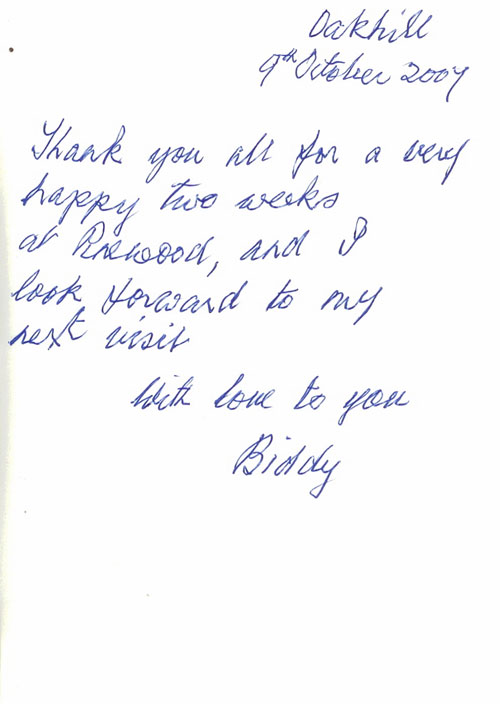 Oakhill
9th October 2007
Thank you all for a very
happy two weeks
at Pinewood, and I
look forward to my
next visit
With love to you
Biddy